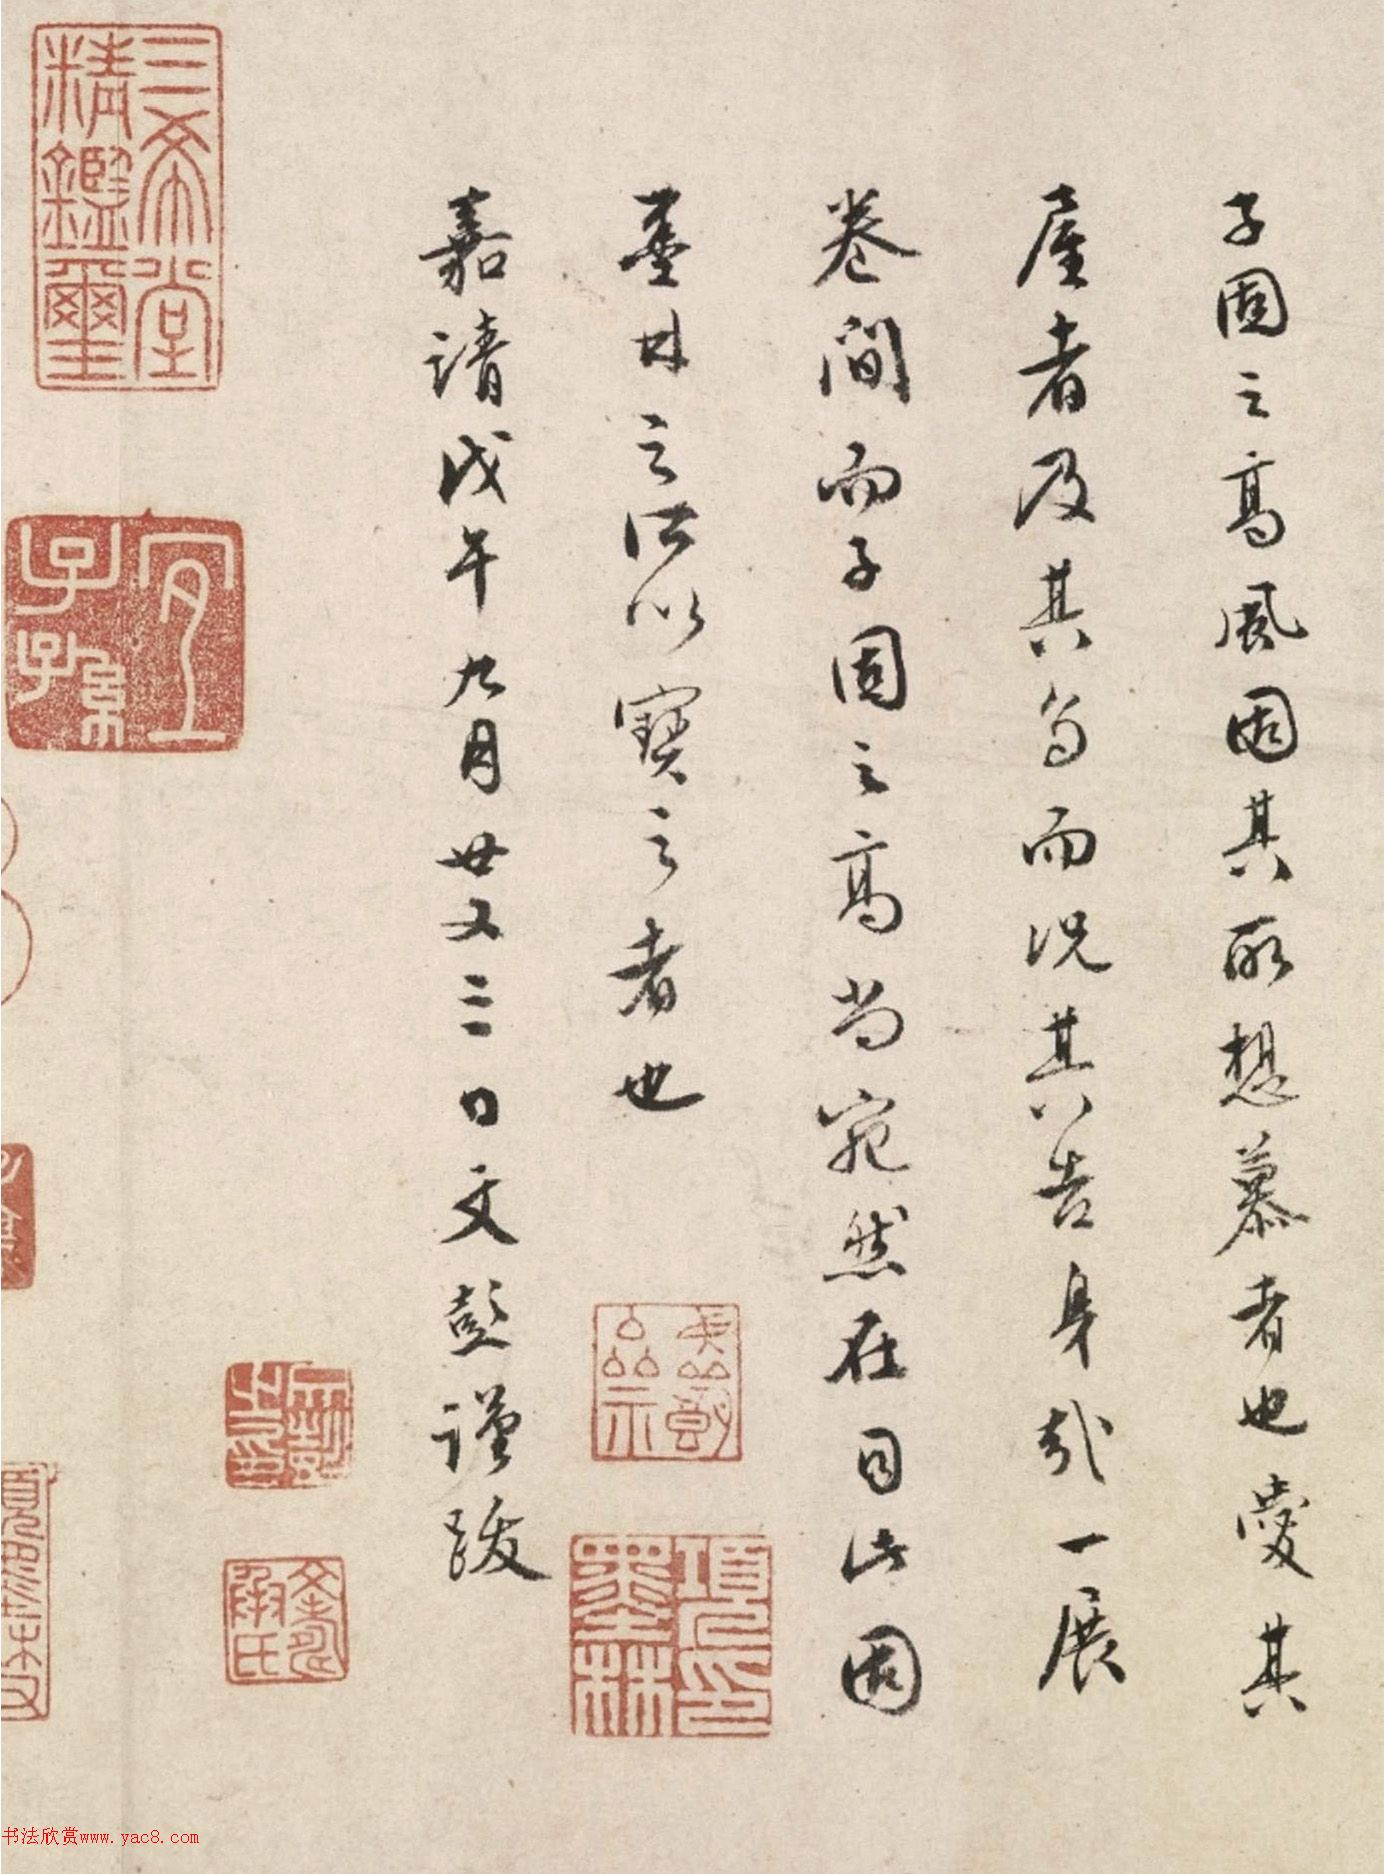 子固之高風固其所想慕者也愛其
屋者及其烏而況其告身哉一展
卷間而子固之高尚宛然在目此固
墨林之所以寶之者也
嘉靖戊午九月廿又三日文彭謹跋
三希堂
精鑑璽
宜
子孫
項氏
墨林
文壽
承氏
书法欣赏www.yac8.com